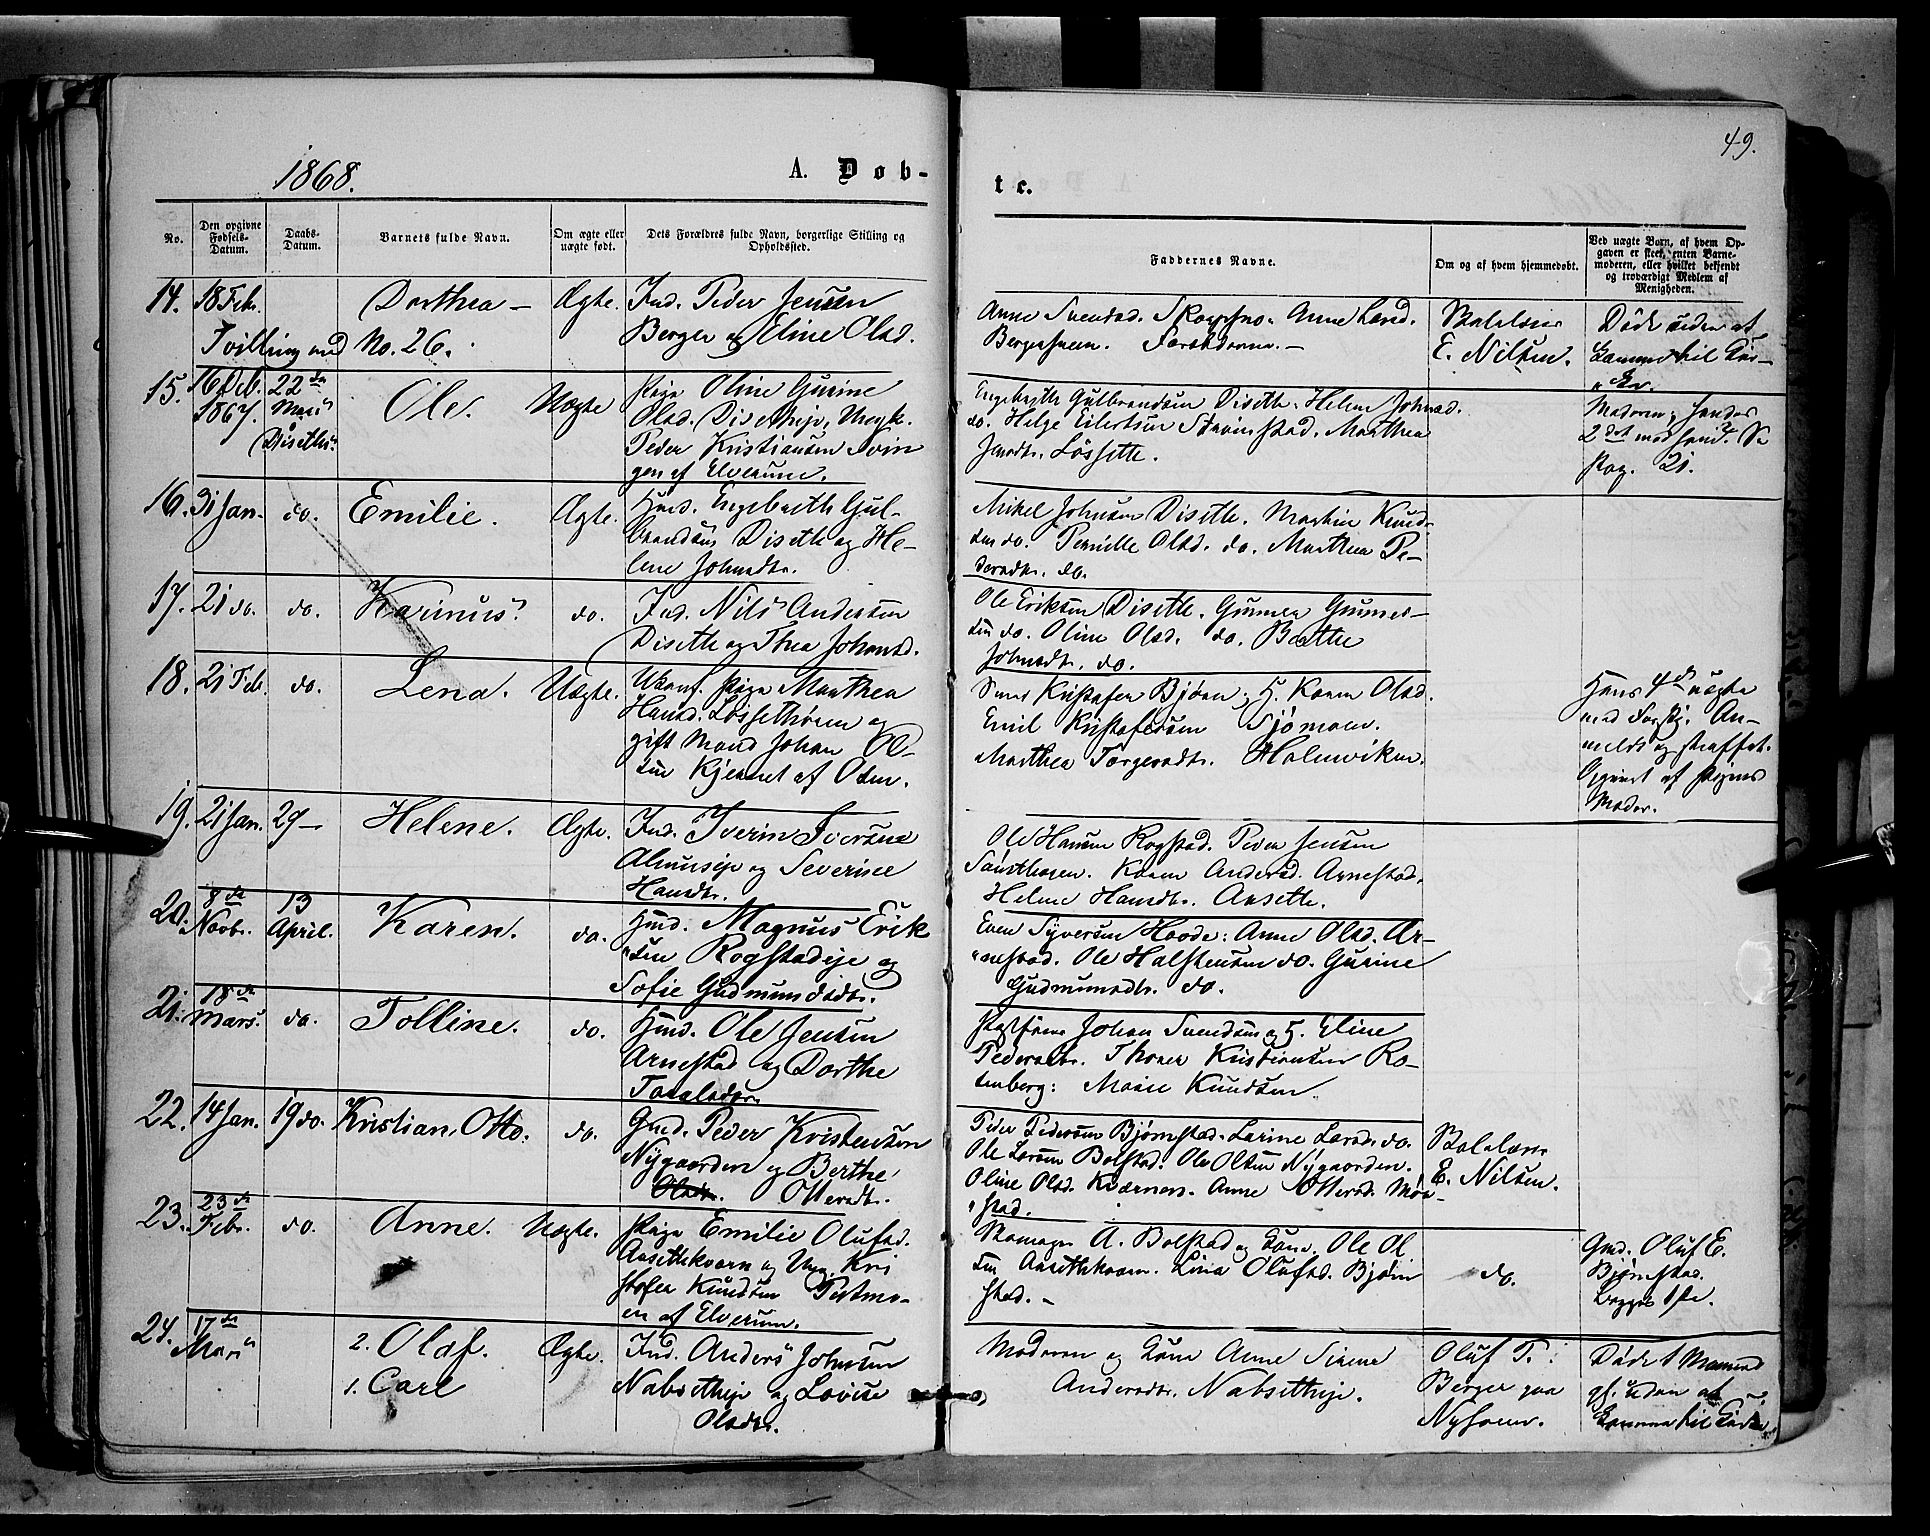 49.
1868.
A. Døb-
te.
No.
Den opgivne Fødsels-Datum.
Daabs-Datum.
Barnets fulde Navn.
Om ægte eller uægte født.
Dets Forældres fulde Navn, borgerlige Stilling og Opholdssted.
Faddernes Navne.
Om og af hvem hjemmedøbt.
Ved uægte Barn, af hvem Opgaven er skeet, enten Barnemoderen, eller hvilket bekjendt og troværdigt Medlem af Menigheden.
14. 18 Feb. Dorthea — Ægte. Ind. Peder Jensen
Tvilling med No. 26.
Berger og Eline Olsd.
Anne Svendsd. Anne Larsd.
E. Nilsen.
Døde uden at
komme til
15. 16 Deb. 1867. 22de Mars Disethe. Ole. Uægte
Pige Oline Gurine
Olsd. Ungk.
Peder Kristiansen Svin
gen af Elverum.
Engebreth Gulbrandsen Diseth. Helene Johnsd.
do. Helge Eilertsen Stavinstad. Marthea
Løssette.
Moderen
2det med Se
Pag. 21.
16. 31 Jan. do. Emilie. Ægte.
Engebreth Gul-
brandsen Diseth og He-
lene Johnsdtr.
Mikel Johnsen Diseth. Knud-
sen do. Pernille Olsd. do. Marthea Pe-
dersdtr. do.
17. 21 do. do. Karinus. do.
Ind. Nils Andersen
Diseth og Thea Johansd.
Ole Eriksen Diseth. Gunner Gunner-
sen do. Oline Olsd. do. Berthe
Johnsdtr. do.
18. 21 Feb. do. Lena. Uægte.
Pige Marthea
Hansd. og
gift Mand Johan Ol-
sen Kjernet af Osen.
Kristofer Bjørn og H. Karen Olsd.
Emil Kristofersen Sjømoen.
Marthea Torgersdtr. Holmviken.
Hans 4de uægte
An-
meldt og straffet.
Opgivet af Pigens
Moder.
19. 21 Jan. 29 — Helene. Ægte.
Ind. Iverin Iversen
og Severine
Hansdtr.
Ole Hansen Rogstad. Peder Jensen
Karen Andersd. Arnestad.
Helene Hansdtr. Ansette.
20. 8de Novbr. 13 April. Karen. do.
Magnus Erik
sen Rogstadeje og
Sofie Gudmundsdtr.
Even Syversen Hoode. Anne Olsd. Ar-
nestad. Ole Halstensen do. Gurine
Gudmunsdtr. do.
21. 18de Mars. do. Tolline. do.
Ole Jensen
Arnestad og Dorthe
Johan Svendsen og H. Eline
Pedersdtr. Kristiansen Ro-
tenberg: Marie Knudsen.
22. 14 Jan. 19 do. Kristian, Otto. do.
Gmd. Peder Kristensen
Nygaarden og Berthe
Olsdtr. Ottersdtr.
Peder Pedersen Bjørnstad. Larine Larsd. do.
Ole Larsen Bolstad. Ole Olsen Nygaarden.
Oline Olsd. Kværnen. Anne Ottersd. Mør-
stad.
E. Nilsen.
23. 23de Febr. do. Anne. Uægte.
Pige Emilie Olufsd.
Ansethkvern og Ung. Kri
stofer Knudsen Pertmo-
en af Elverum.
A. Bolstad og Kone. Ole Ol
sen Ansethkvern. Lina Olufsd. Bjørn
stad. —
do.
Gmd. Oluf E.
Bjørnstad.
Begges 1ste.
24. 17de Mars 2. Olaf. Ægte.
1. Carl
Ind. Anders Johnsen
Nabsetheje og Lovise
Olsdtr.
Moderen og Kone Anne Sirene
Andersdtr. Nabsetheje.
Oluf T.
Berger paa
Nysæter.
Døde 1 Maaned
gl. uden at
komme til Kirke.